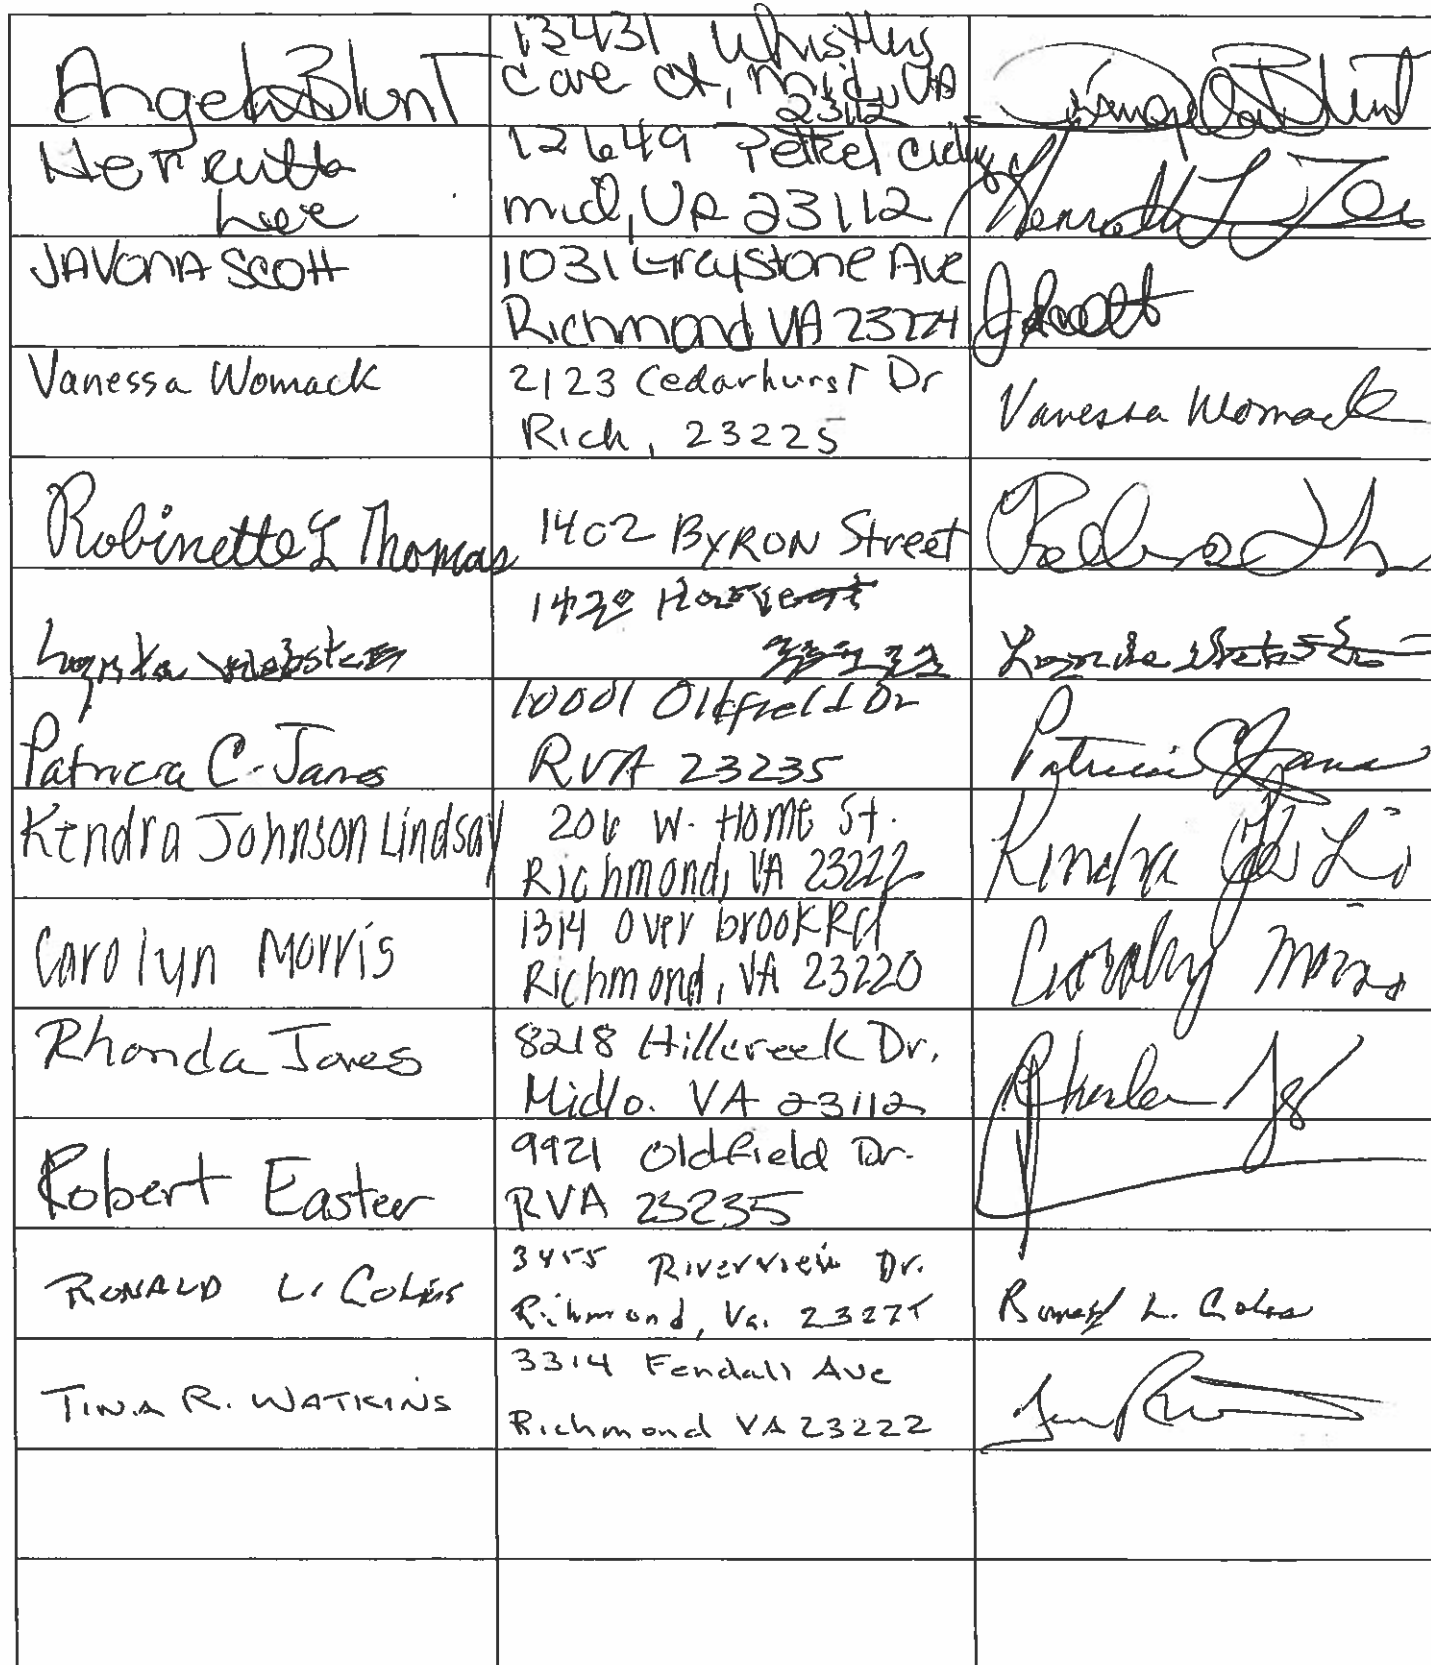 Angela Blunt
13431 Whistlers
Cove Ct, Mid, VA
23112
Angela Blunt
Lee
12649 Petrel
mid, VA 23112
JAVONA SCOTT
1031 Graystone Ave
Richmond VA 23224
J Scott
Vanessa Womack
2123 Cedarhurst Dr
Rich, 23225
Vanessa Womack
Robinette L Thomas
1402 BYRON Street
1420
Webster
Patricia C. Jones
10001 Oldfield Dr
RVA 23235
Patricia C Jones
Kendra Johnson Lindsay
206 W. Home St.
Richmond, VA 23222
Kendra
Carolyn Morris
1314 Overbrook Rd
Richmond, VA 23220
Carolyn Morris
Rhonda Jones
8218 Hillcreek Dr.
Midlo. VA 23112
Robert Easter
9921 Oldfield Dr.
RVA 23235
RONALD L. COLES
3455 Riverview Dr.
Richmond, Va.
Ronald L. Coles
TINA R. WATKINS
3314 Fendall Ave
Richmond VA 23222